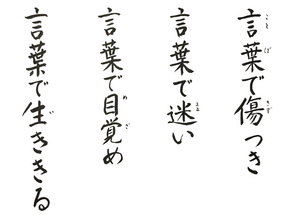 言葉で傷つき
言葉で迷い
言葉で目覚め
言葉で生ききる